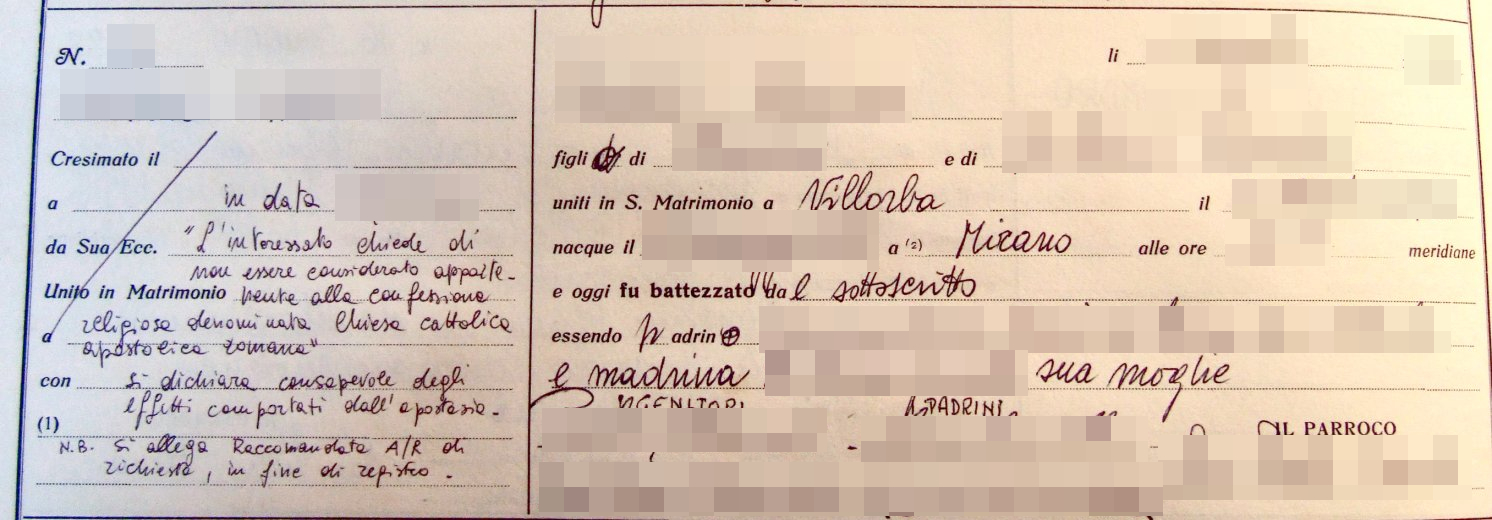 N.
Cresimato il
a in data
da Sua Ecc. "L'interessato chiede di
non essere considerato apparte-
Unito in Matrimonio nente alla confessione
a religiosa denominata Chiesa cattolica
apostolica romana"
con si dichiara consapevole degli
effetti comportati dall'apostasia.
(1)
N.B. Si allega Raccomandata A/R di
richiesta, in fine di registro.
li
figli di e di
uniti in S. Matrimonio a Villorba il
nacque il a (2) Mirano alle ore meridiane
e oggi fu battezzato dal sottoscritto
essendo padrino
e madrina sua moglie
I GENITORI I PADRINI IL PARROCO